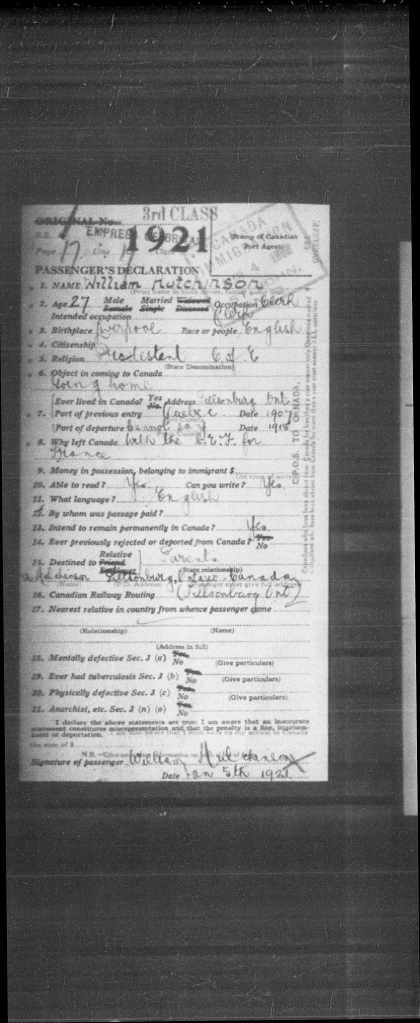 3rd CLASS
ORIGINAL No.
EMPRESS
1921
CANADA
IMMIGRATION
Stamp of Canadian
Port Agent
Page 17 Line
PASSENGER'S DECLARATION
1. NAME William Hutchinson
2. Age 27 Male Female Married Single Widowed Divorced Occupation Clerk
Intended occupation Clerk
3. Birthplace Liverpool Race or people English
4. Citizenship
5. Religion Protestant C of E
(State Denomination)
6. Object in coming to Canada
Going home
Ever lived in Canada? Yes No Address Tillsonburg Ont
7. Port of previous entry Quebec Date 1907
Port of departure Date 1915
8. Why left Canada With the C.E.F. for
France
9. Money in possession, belonging to immigrant $
10. Able to read? Yes Can you write? Yes
11. What language? English
12. By whom was passage paid?
13. Intend to remain permanently in Canada? Yes
14. Ever previously rejected or deported from Canada? Yes No
15. Destined to Relative Friend Employer Parents
(State relationship)
Tillsonburg, Ontario Canada
(Name)
16. Canadian Railway Routing (Tillsonburg Ont)
17. Nearest relative in country from whence passenger came
(Relationship) (Name)
(Address in full)
18. Mentally defective Sec. 3 (a) Yes No (Give particulars)
19. Ever had tuberculosis Sec. 3 (b) Yes No (Give particulars)
20. Physically defective Sec. 3 (c) Yes No (Give particulars)
21. Anarchist, etc. Sec. 3 (n) (o) Yes No
I declare the above statements are true: I am aware that an inaccurate
statement constitutes misrepresentation and that the penalty is a fine, imprison-
ment or deportation.
the sum of $
Signature of passenger William Hutchinson
Date Jan 5th 1921
C.P.O.S. TO CANADA.